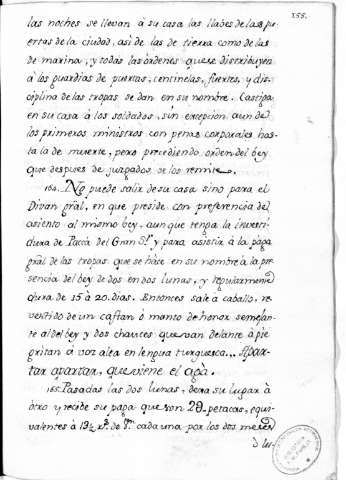 155.
las noches se llevan á su casa las llabes de las pu-
ertas de la ciudad, asi de las de tierra como de las
de marina, y todas las ordenes que se distribuyen
á los guardias de puertas, centinelas, fuertes, y dis-
ciplina de las tropas se dan en su nombre. Castiga
en su casa á los soldados, sin excepcion aun de
los primeros ministros con penas corporales has-
ta la de muerte, pero precediendo orden del bey
que despues de juzgados se los remite.
164. No puede salir de su casa sino para el
Divan gral, en que preside con preferencia del
asiento al mismo bey, aunque tenga la investi-
dura de Pacha del Gran Sr. y para asistir á la paga
gral de las tropas que se hace en su nombre á la pre-
sencia del bey de dos en dos lunas, y regularmente
dura de 15 á 20 dias. Entonces sale á caballo, re-
vestido de un caftan ó manto de honor semejan-
te al del bey y dos chauces que van delante á pie
gritan á voz alta en lengua turquesca... Apar-
tar apartar, que viene el agà.
165. Pasadas las dos lunas, dexa su lugar á
otro y recibe su paga que son 20 patacas, equi-
valentes á 13½ rs. de vn. cada una por los dos meses